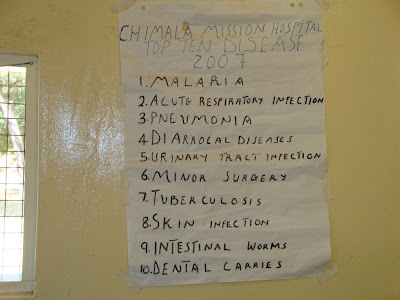 CHIMALA MISSION HOSPITAL
TOP TEN DISEASE
2007
1. MALARIA
2. ACUTE RESPIRATORY INFECTION
3. PNEUMONIA
4. DIARROEAL DISEASES
5. URINARY TRACT INFECTION
6. MINOR SURGERY
7. TUBERCULOSIS
8. SKIN INFECTION
9. INTESTINAL WORMS
10. DENTAL CARRIES